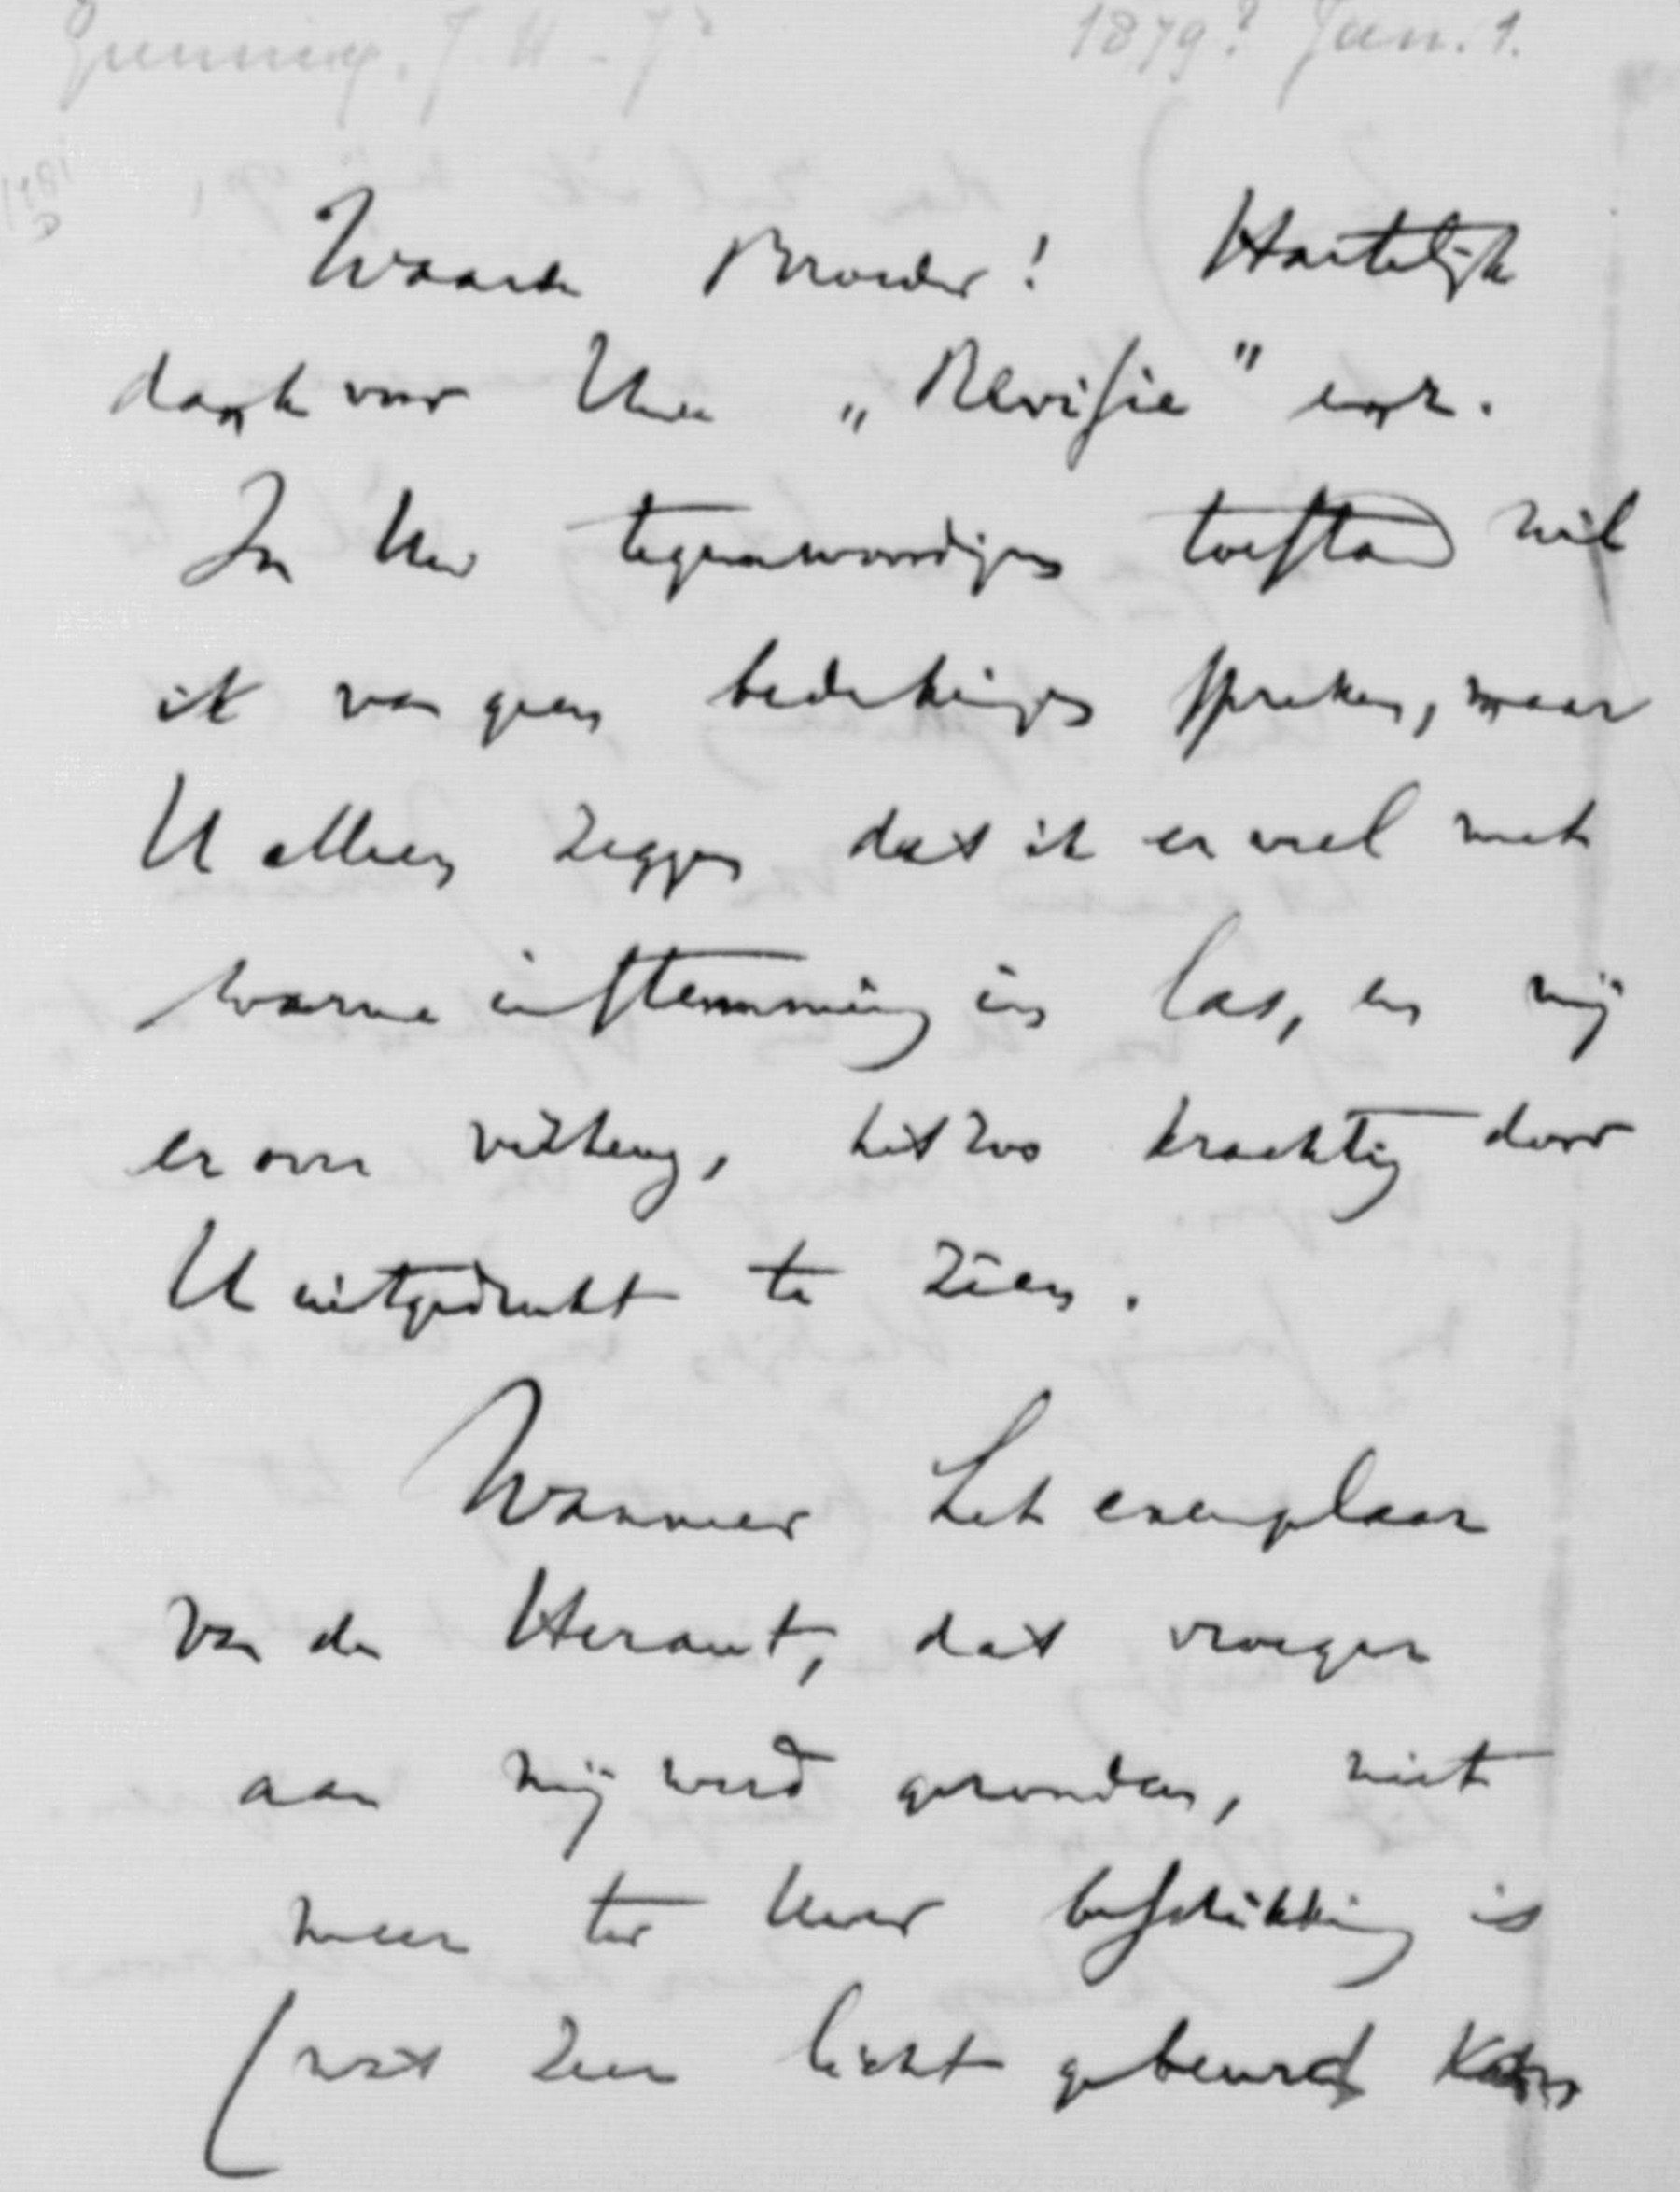 Gunning, J. H. Jr 1879? Jan. 1.
Waarde Broeder! Hartelijk
dank voor Uw „Revisie" enz.
In Uw tegenwoordigen toestand wil
ik van geen bedenkingen spreken, maar
U alleen zeggen dat ik er veel met
warme instemming in las, en mij
er over verheug, het zoo krachtig door
U uitgedrukt te zien.
Wanneer het exemplaar
van de Heraut, dat vroeger
aan mij werd gezonden, niet
meer ter Uwer beschikking is
(wat zeer licht gebeurd kan